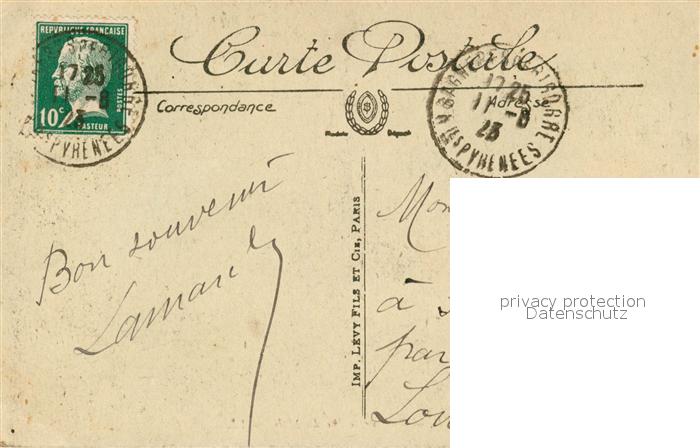 REPVBLIQUE FRANÇAISE
10c
POSTES
PASTEUR
17 25
11 - 8
PYRENEES
Carte Postale
Correspondance
Adresse
BAGNERES BIGORRE
17 25
11 - 8
23
Hes PYRENEES
Bon souvenir
IMP. LÉVY FILS ET CIE, PARIS
Mon
à
par
Lou
privacy protection
Datenschutz